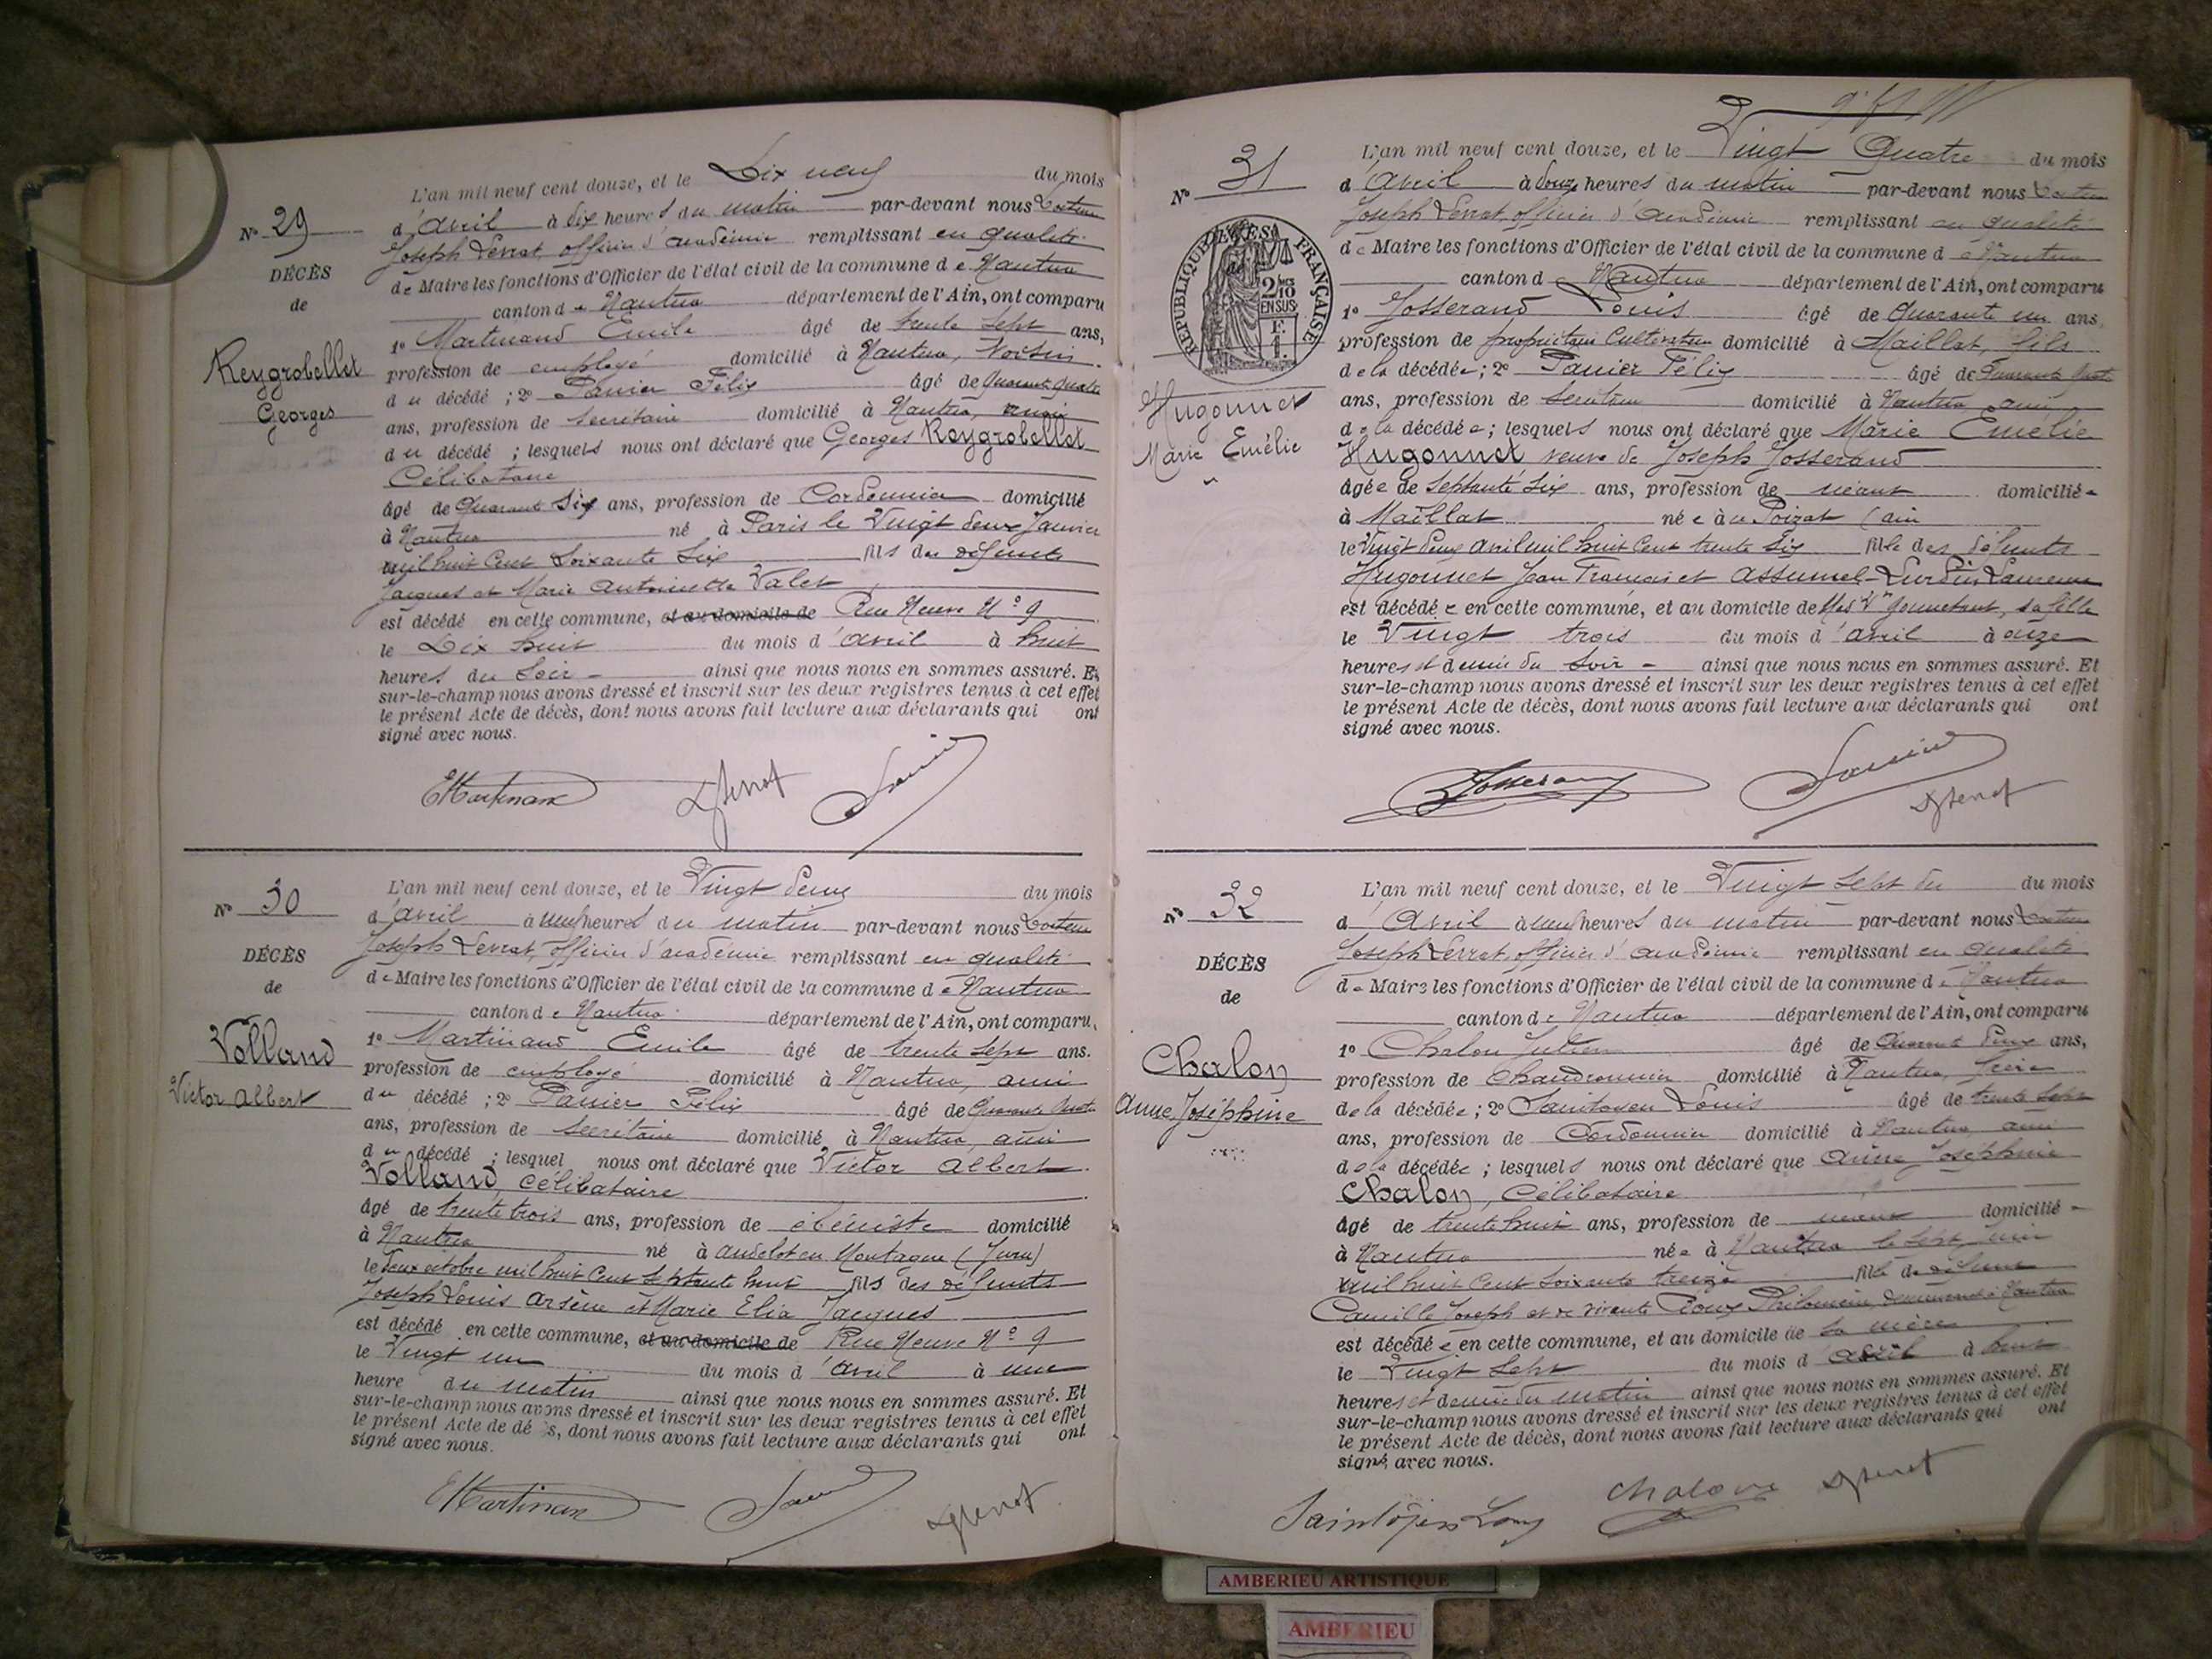 L'an mil neuf cent douze, et le Dix neuf du mois
d'avril à dix heures du matin par-devant nous Docteur
Joseph Levrat, officier d'académie remplissant en qualité
de Maire les fonctions d'Officier de l'état civil de la commune de Nantua
canton de Nantua département de l'Ain, ont comparu
1º Martinand Emile âgé de trente sept ans,
profession de employé domicilié à Nantua, voisin
du décédé ; 2º Panier Félix âgé de quarante quatre
ans, profession de secrétaire domicilié à Nantua,
du décédé ; lesquels nous ont déclaré que Georges Reygrobellet
Célibataire
âgé de Quarante Six ans, profession de Cordonnier domicilié
à Nantua né à Paris le Vingt deux Janvier
mil huit Cent Soixante Six fils de défunts
Jacques et Marie Antoinette Valet
est décédé en cette commune, et au domicile de Rue Neuve Nº 9
le Dix huit du mois d'avril à huit
heures du Soir ainsi que nous nous en sommes assuré. Et
sur-le-champ nous avons dressé et inscrit sur les deux registres tenus à cet effet
le présent Acte de décès, dont nous avons fait lecture aux déclarants qui ont
signé avec nous.
Nº 29
DÉCÈS
de
Reygrobellet
Georges
EMartinand
Nº 30
DÉCÈS
de
Volland
Victor Albert
L'an mil neuf cent douze, et le Vingt deux du mois
d'avril à neuf heures du matin par-devant nous Docteur
Joseph Levrat, officier d'académie remplissant en qualité
de Maire les fonctions d'Officier de l'état civil de la commune de Nantua
canton de Nantua département de l'Ain, ont comparu
1º Martinand Emile âgé de trente sept ans.
profession de employé domicilié à Nantua, ami
du décédé ; 2º Panier Félix âgé de Quarante quatre
ans, profession de Secrétaire domicilié à Nantua, ami
du décédé ; lesquel nous ont déclaré que Victor Albert
Volland célibataire
âgé de trente trois ans, profession de ébéniste domicilié
à Nantua né à Andelot en Montagne (Jura)
le deux octobre mil huit Cent Septante huit fils des défunts
Joseph Louis Arsène et Marie Elia Jacques
est décédé en cette commune, et au domicile de Rue Neuve Nº 9
le Vingt un du mois d'avril à une
heure du matin ainsi que nous nous en sommes assuré. Et
sur-le-champ nous avons dressé et inscrit sur les deux registres tenus à cet effet
le présent Acte de décès, dont nous avons fait lecture aux déclarants qui ont
signé avec nous.
EMartinand
Nº 31
RÉPUBLIQUE FRANÇAISE
2/10
EN SUS
Hugonnet
Marie Emélie
L'an mil neuf cent douze, et le Vingt Quatre du mois
d'Avril à douze heures du matin par-devant nous Docteur
Joseph Levrat, officier d'académie remplissant en qualité
de Maire les fonctions d'Officier de l'état civil de la commune de Nantua
canton de Nantua département de l'Ain, ont comparu
1º Josserand Louis âgé de Quarante un ans,
profession de propriétaire Cultivateur domicilié à Maillat, fils
de la décédée ; 2º Panier Félix âgé de Quarante quatre
ans, profession de Secrétaire domicilié à Nantua ami
de la décédée ; lesquels nous ont déclaré que Marie Emélie
Hugonnet veuve de Joseph Josserand
âgée de Septante Six ans, profession de néant domiciliée
à Maillat née à au Poizat (ain
le Vingt deux avril mil huit Cent trente Six fille des défunts
Hugonnet Jean François et Assumel-Lurdin Laurence
est décédée en cette commune, et au domicile de sa fille
le Vingt trois du mois d'avril à onze
heures et demie du Soir ainsi que nous nous en sommes assuré. Et
sur-le-champ nous avons dressé et inscrit sur les deux registres tenus à cet effet
le présent Acte de décès, dont nous avons fait lecture aux déclarants qui ont
signé avec nous.
Josserand
Nº 32
DÉCÈS
de
Chalon
Anne Joséphine
L'an mil neuf cent douze, et le Vingt Sept du du mois
d Avril à neuf heures du matin par-devant nous Docteur
Joseph Levrat, officier d'académie remplissant en qualité
de Maire les fonctions d'Officier de l'état civil de la commune de Nantua
canton de Nantua département de l'Ain, ont comparu
1º Chalon Julien âgé de Quarante deux ans,
profession de Chaudronnier domicilié à Nantua, frère
de la décédée ; 2º Saintoyen Louis âgé de trente sept
ans, profession de Cordonnier domicilié à Nantua ami
de la décédée ; lesquels nous ont déclaré que Anne Joséphine
Chalon, Célibataire
âgé de trente huit ans, profession de néant domicilié
à Nantua née à Nantua le Sept juin
mil huit Cent Soixante treize fille de défunt
Camille Joseph et de vivante Roux Philomène, demeurant à Nantua
est décédée en cette commune, et au domicile de Sa mère
le Vingt Sept du mois d'avril à huit
heures et demie du matin ainsi que nous nous en sommes assuré. Et
sur-le-champ nous avons dressé et inscrit sur les deux registres tenus à cet effet
le présent Acte de décès, dont nous avons fait lecture aux déclarants qui ont
signé avec nous.
Saintoyen Louis
Chalon
AMBERIEU ARTISTIQUE
AMBERIEU